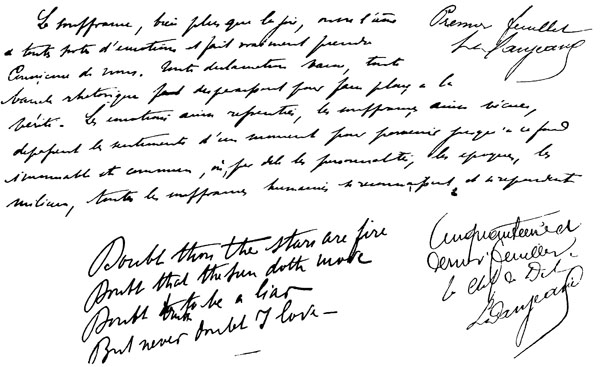 La souffrance, bien plus que la joie, ouvre l'âme
a toute sorte d'émotions et fait vraiment prendre
Conscience de nous. Toute déclamation vaine, tout
banale rhétorique font disparaître pour faire place a la
vérité. Les émotions ainsi ressenties, les souffrances ainsi vécues,
dépassent les sentiments d'un moment pour parvenir jusqu'a ce fond
immuable et commun, où, par delà les personnalités, les époques, les
milieux, toutes les souffrances humaines se reconnaissent et se répondent
Premier feuillet
Doubt thou the stars are fire
Doubt that the sun doth move
Doubt truth to be a liar
But never doubt I love —
Cinquantième et
dernier feuillet